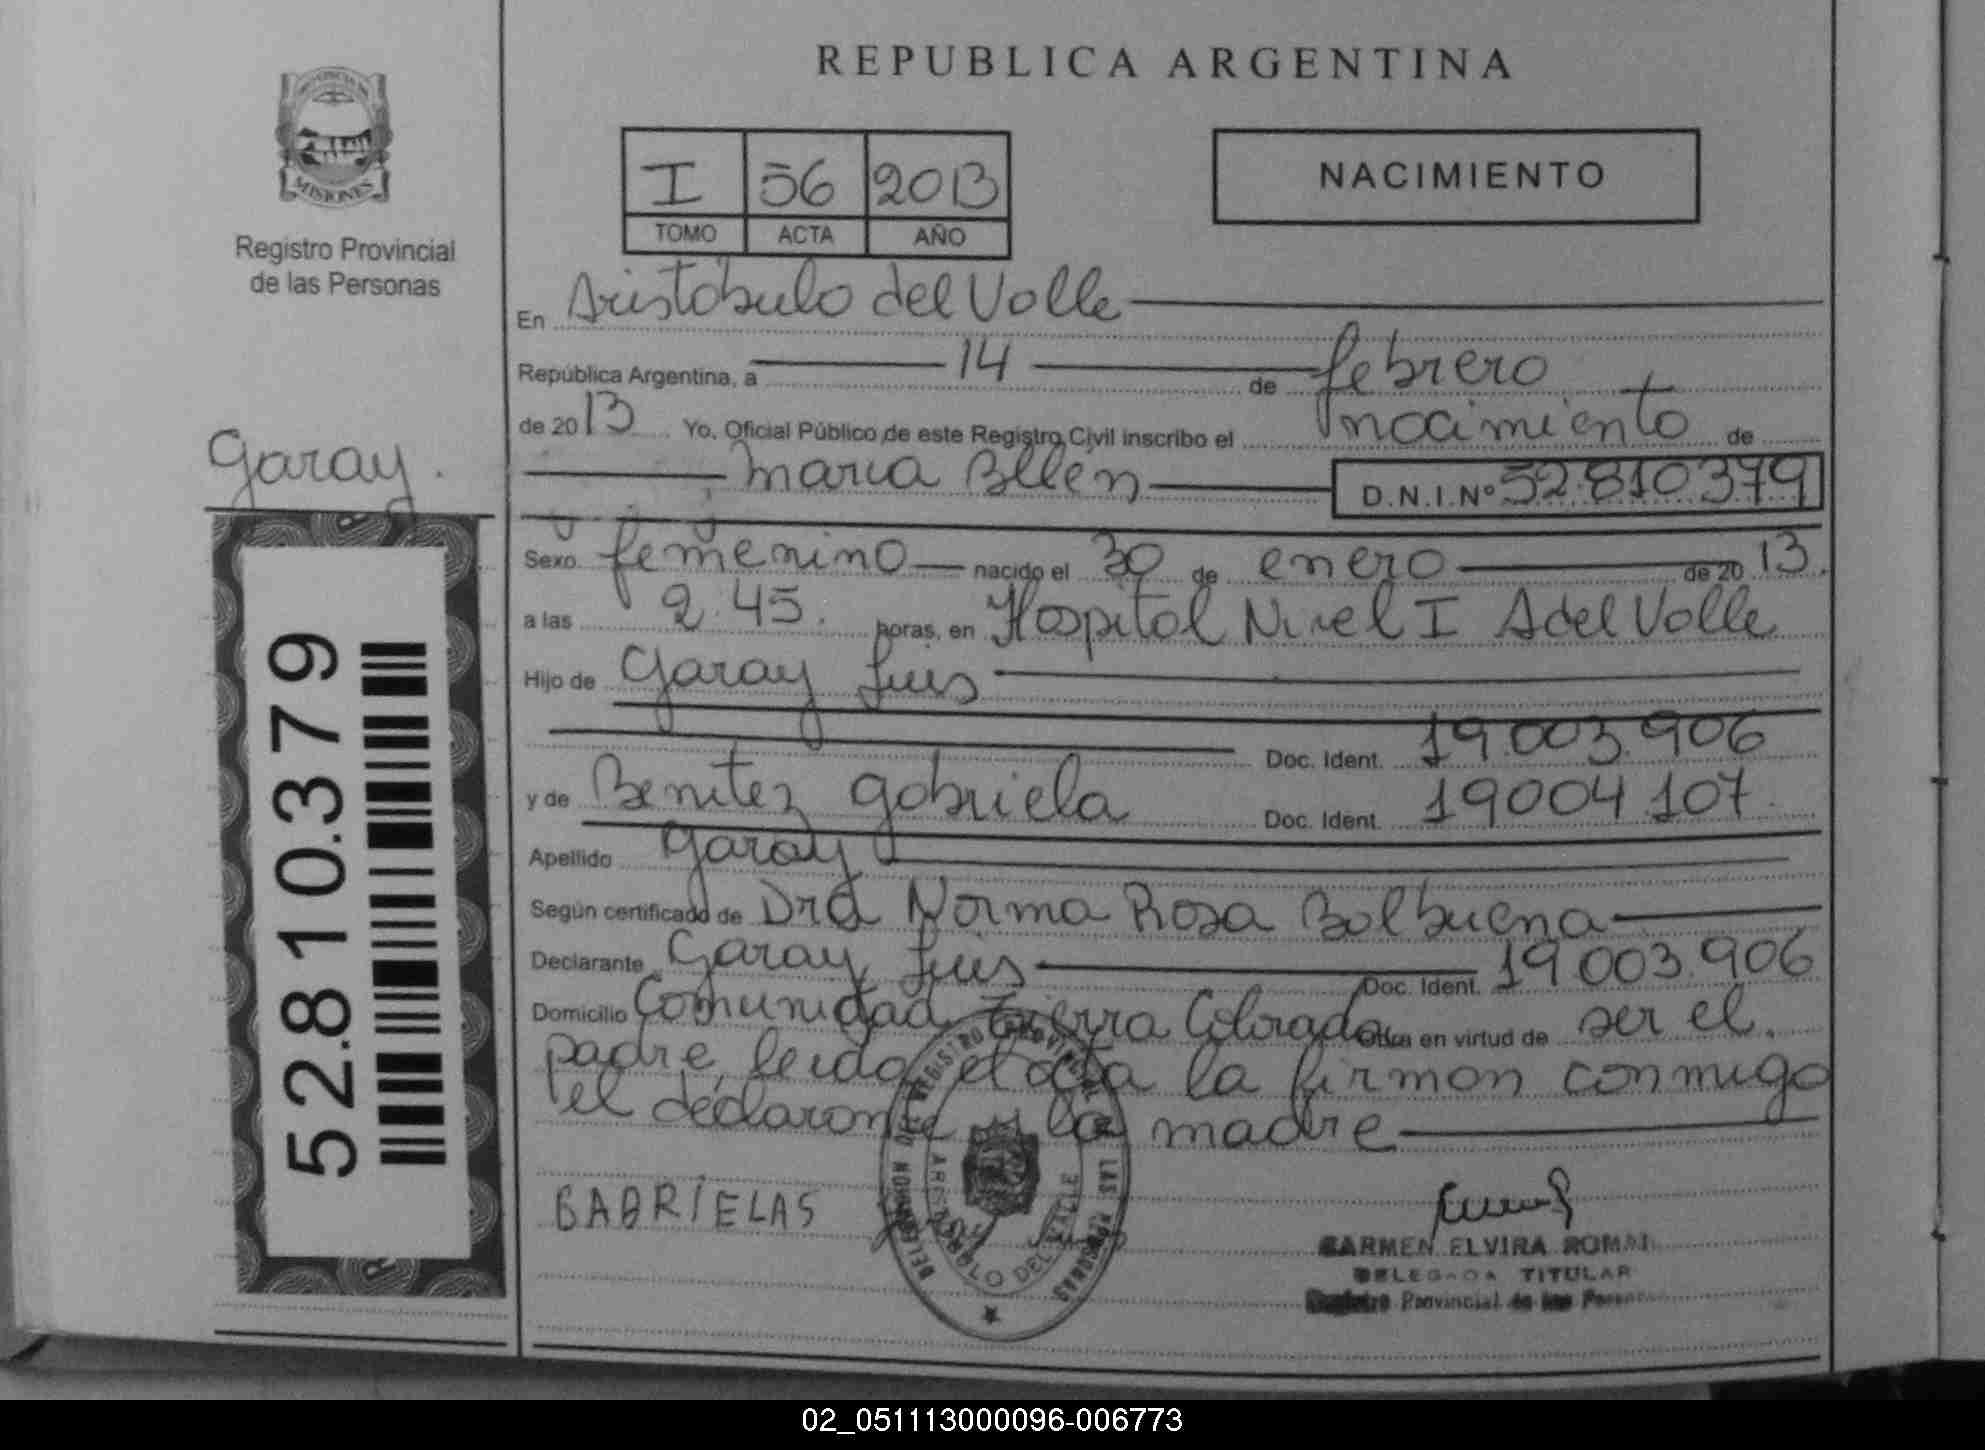 REPUBLICA ARGENTINA
PROVINCIA DE
MISIONES
Registro Provincial
de las Personas
I 56 2013
TOMO ACTA AÑO
NACIMIENTO
En Aristobulo del Valle
República Argentina, a 14 de febrero
de 2013 Yo, Oficial Público de este Registro Civil inscribo el nacimiento de
Garay.
Maria Ellen D.N.I.Nº 52.810379
Sexo femenino nacido el 30 de enero de 2013.
a las 2.45. horas, en Hospital Nivel I A del Valle
Hijo de Garay Luis
Doc. Ident. 19.003.906
y de Benitez Gabriela Doc. Ident. 19004107
Apellido Garay
Según certificado de Dra Norma Rosa Balbuena
Declarante Garay Luis Doc. Ident. 19003.906
Domicilio Comunidad Tierra Colorada Obra en virtud de ser el
padre, leida el acta la firman conmigo
el declarante y la madre
52.810.379
GABRIELAS
REGISTRO PROVINCIAL DE LAS PERSONAS
DEL VALLE
CARMEN ELVIRA ROMAN
DELEGADA TITULAR
Registro Provincial de las Person
02_051113000096-006773